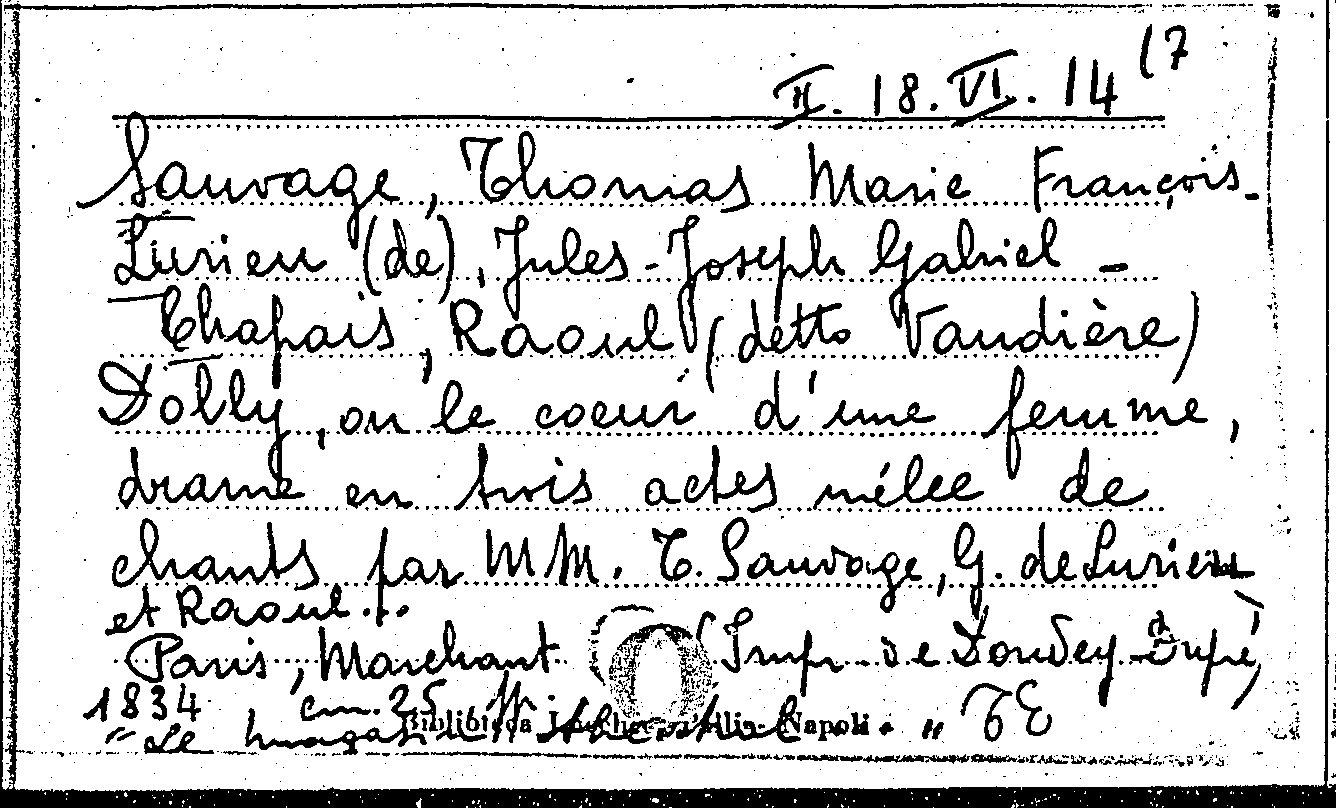 II. 18. VI. 14 (7
Sauvage, Thomas Marie François-
Lurieu (de), Jules-Joseph Gabriel -
Chapais, Raoul (detto Vaudière)
Dolly, ou le coeur d'une femme,
drame en trois actes mêlée de
chants par MM. T. Sauvage, G. de Lurieu
et Raoul...
Paris, Marchant (Impr. de Dondey-Dupré)
1834 cm. 25
Biblioteca Napoli
"Le " TE